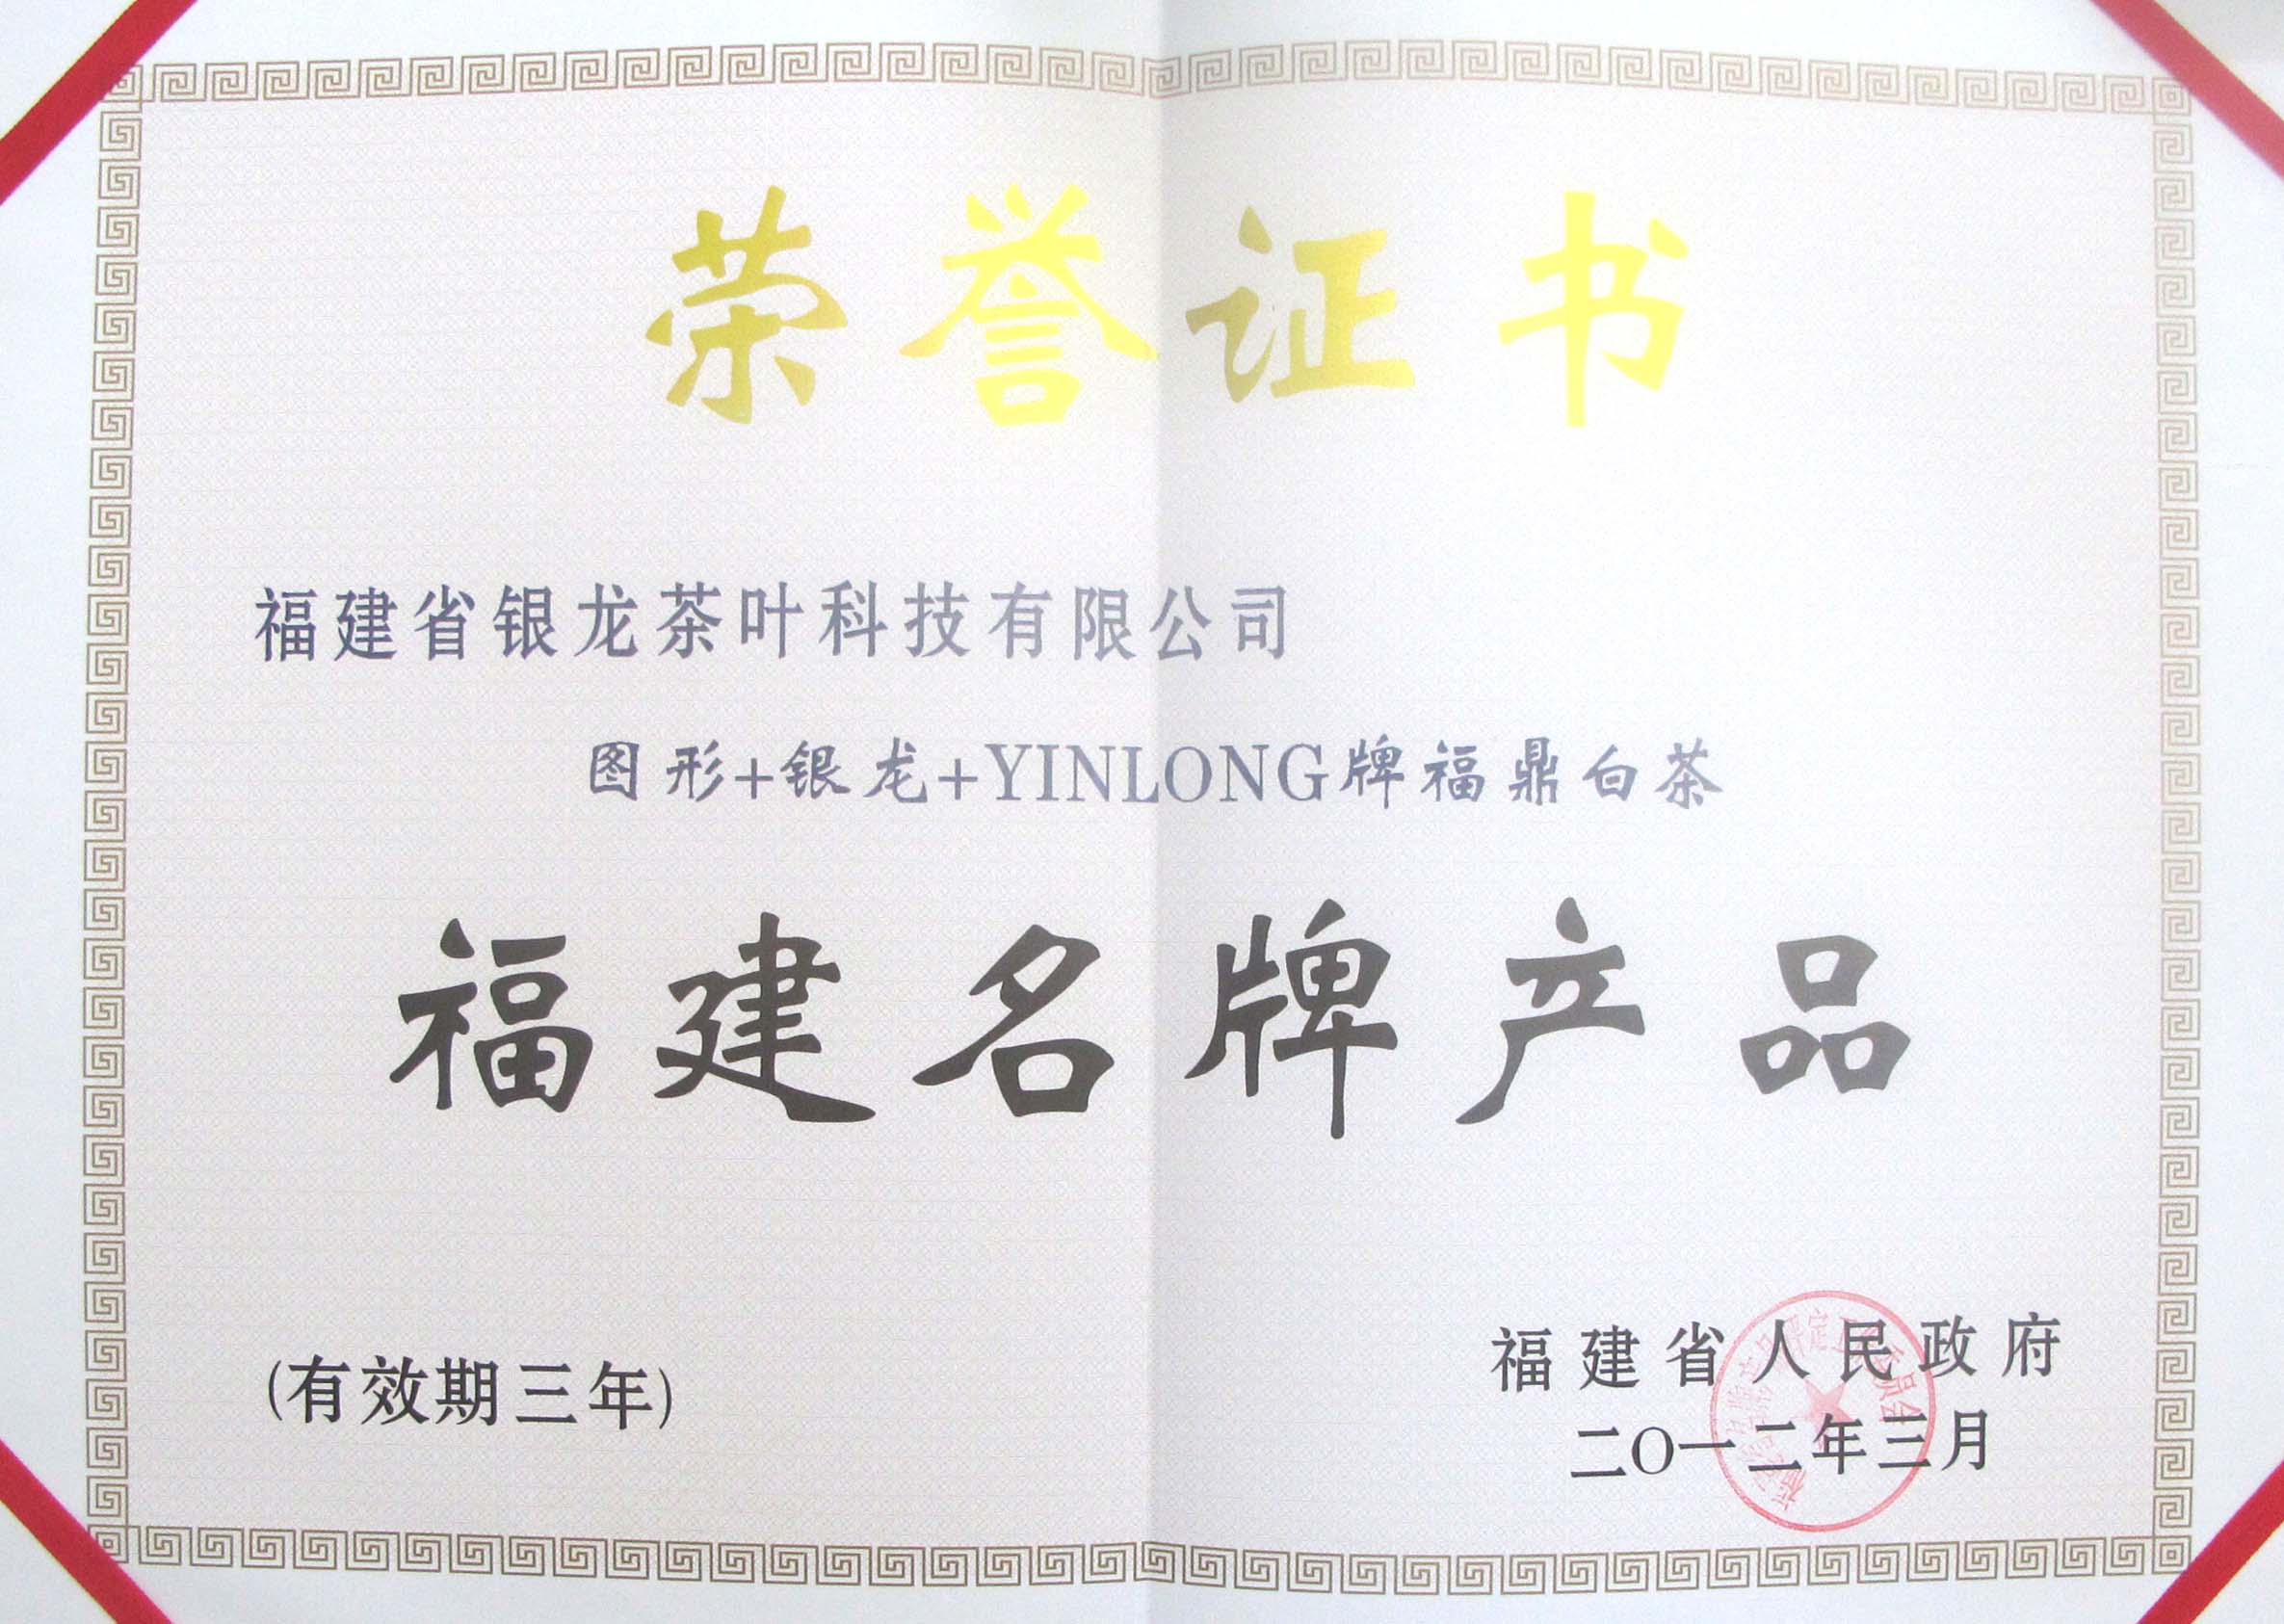 荣誉证书
福建省银龙茶叶科技有限公司
图形+银龙+YINLONG牌福鼎白茶
福建名牌产品
(有效期三年)
福建省人民政府
二〇一二年三月